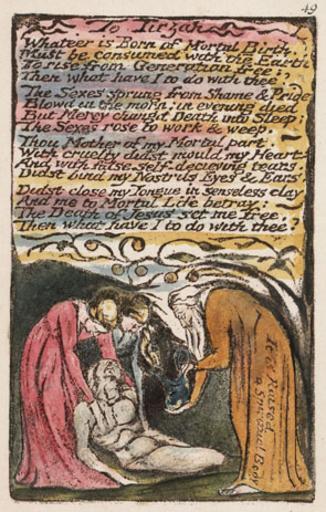 49
To Tirzah
Whate'er is Born of Mortal Birth,
Must be consumed with the Earth
To rise from Generation free:
Then what have I to do with thee?
The Sexes sprung from Shame & Pride
Blow'd in the morn: in evening died
But Mercy chang'd Death into Sleep;
The Sexes rose to work & weep.
Thou Mother of my Mortal part
With cruelty didst mould my Heart
And with false self-decieving tears,
Didst bind my Nostrils Eyes & Ears.
Didst close my Tongue in senseless clay
And me to Mortal Life betray:
The Death of Jesus set me free,
Then what have I to do with thee?
It is Raised
a Spiritual Body